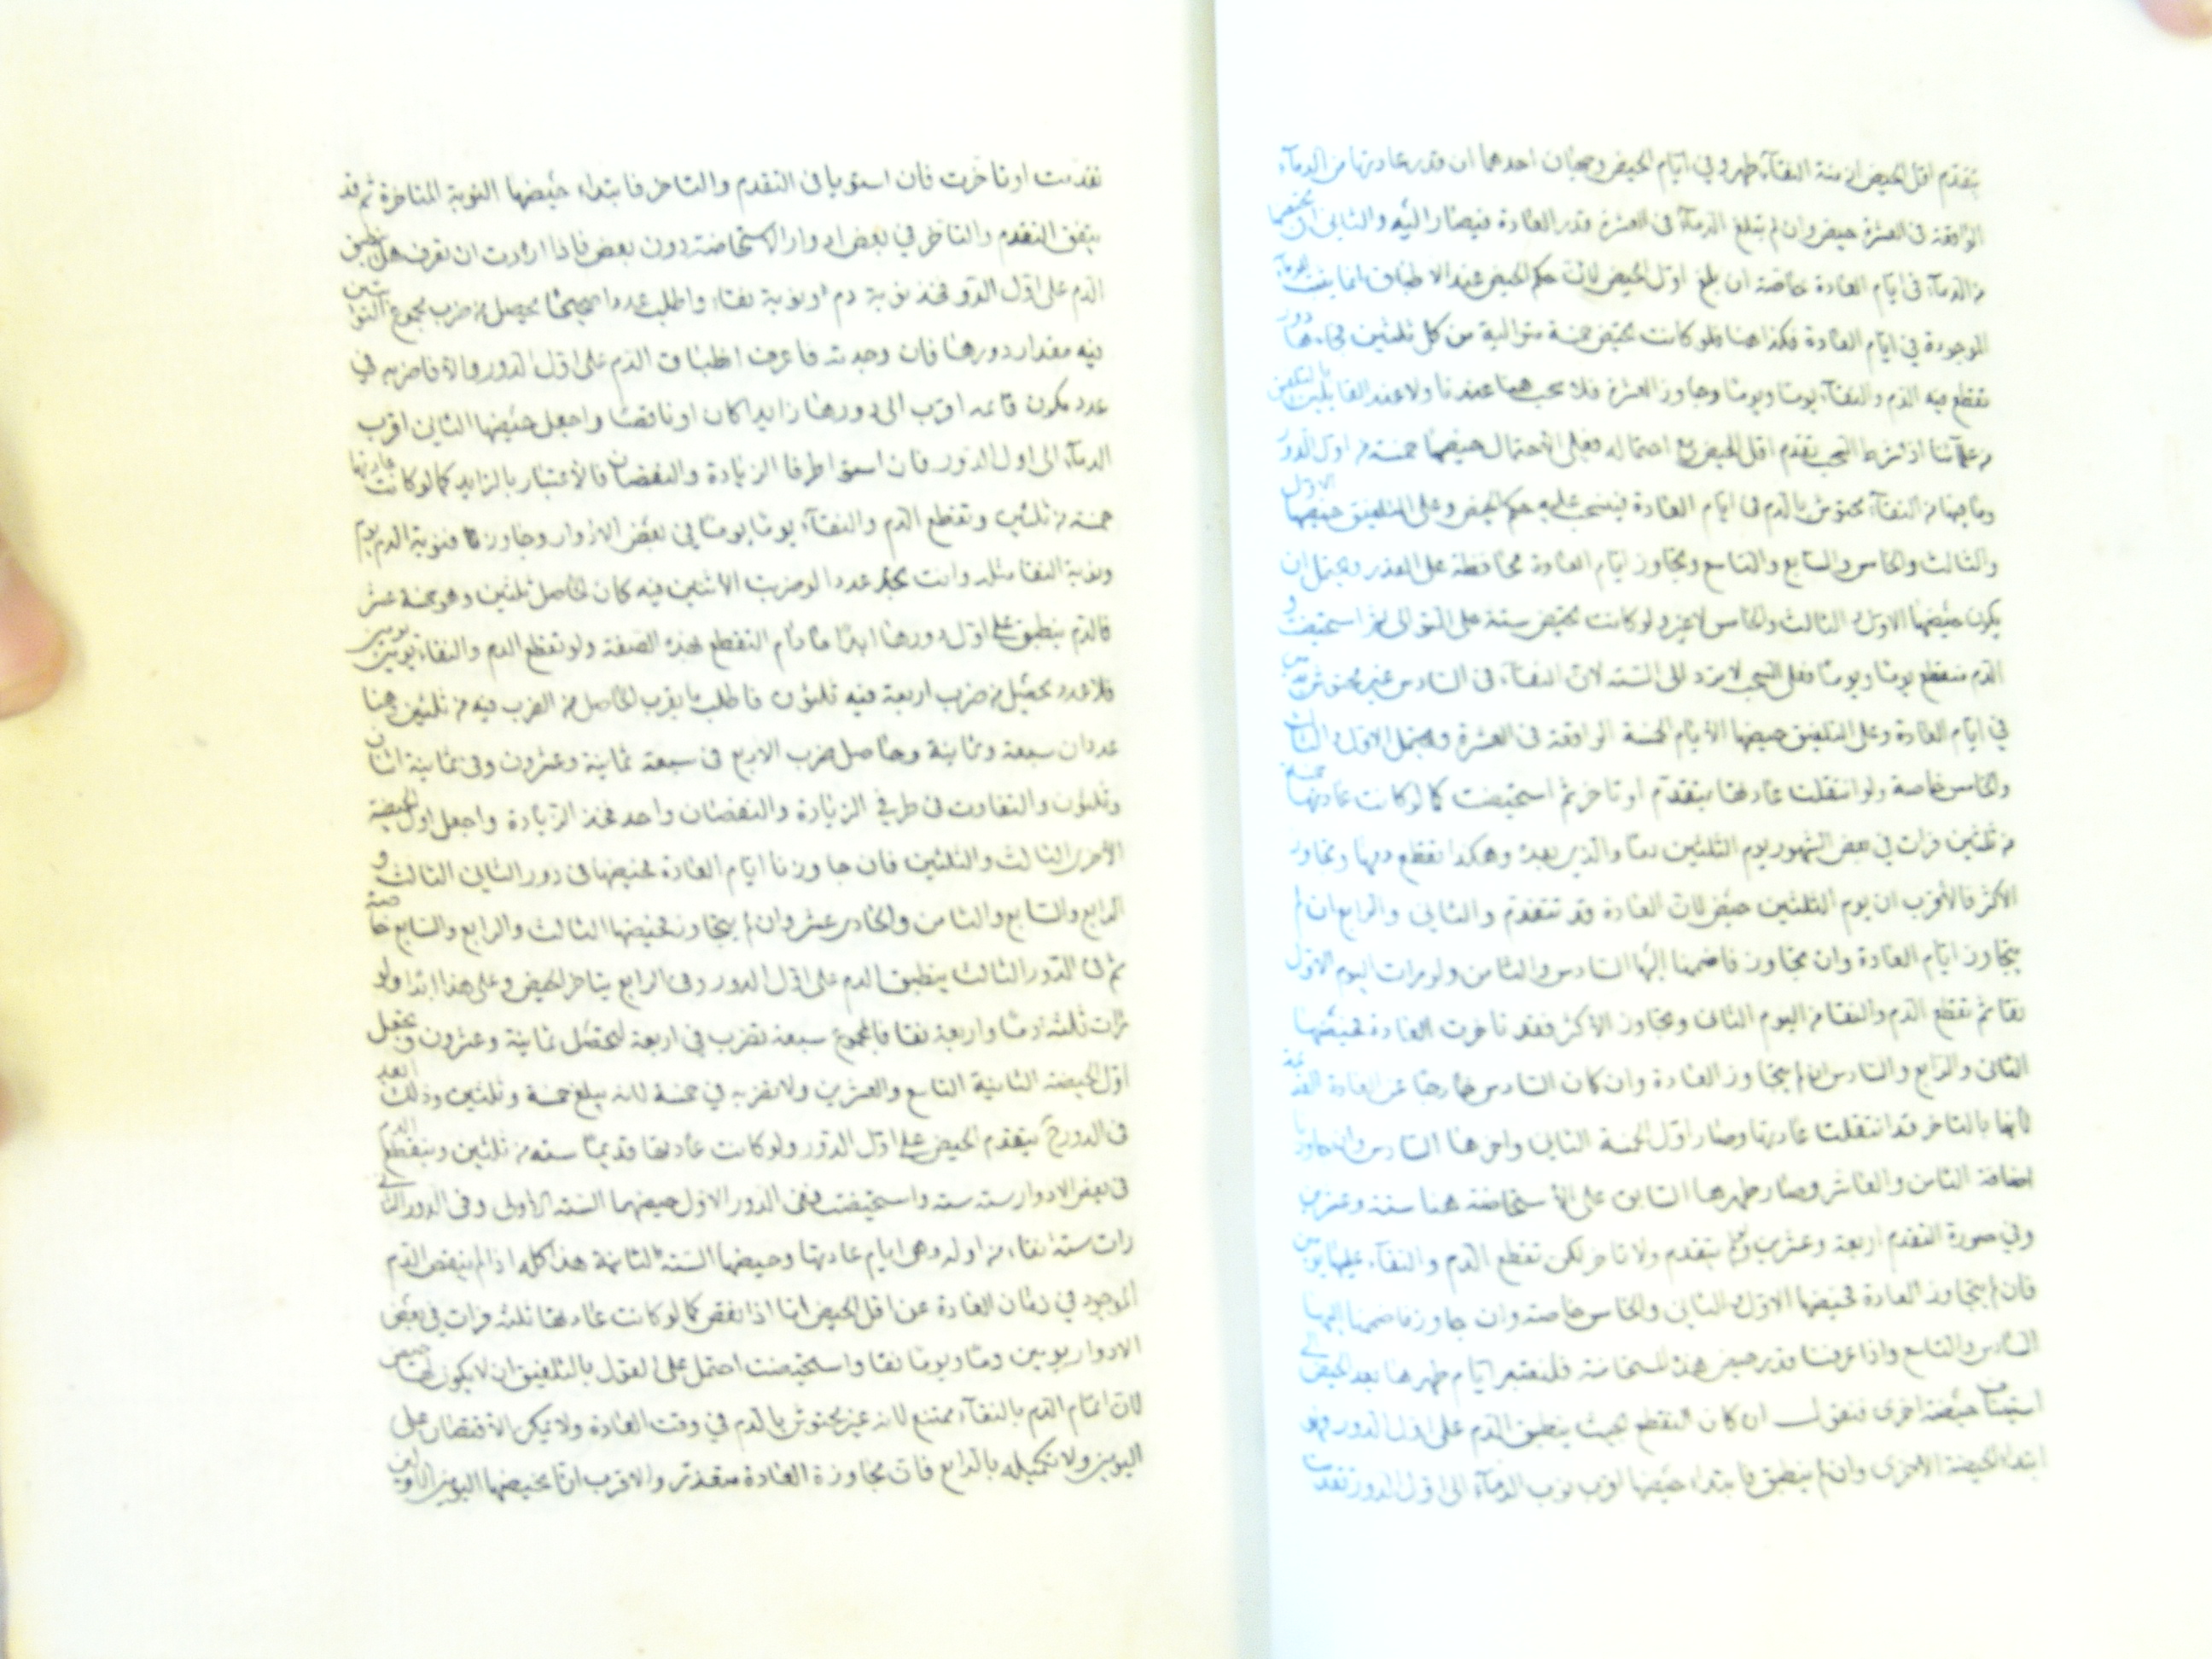 يتقدم اقل الحيض ازمنة النقآء طهر وفي ايام الحيض وجهان احدهما ان قدر عادتها من الدمآء
الواقعة فى العشرة حيض وان لم تبلغ الدمآء فى العشرة قدر العادة فيصار اليه والثانى ان حيضها
من الدمآء فى ايام العادة خاصة ان بلغ اول الحيض لان حكم الحيض عند الاطباق انما يثبت للدمآء
الموجودة في ايام العادة فكذا هنا فلو كانت تحيض خمسة متوالية من كل ثلثين فجاءها دور
تقطع فيه الدم والنقآء يوما ويوما وجاوز العشرة فلا سحب هنا عندنا ولا عند القايلين بالتلفيق
من علمآئنا اذ شرط السحب تقدم اقل الحيض مع احتماله فعلى الاحتمال حيضها خمسة من اول الدور
وما فيها من النقآء محتوش بالدم فى ايام العادة فينسحب عليه حكم الحيض وعلى التلفيق حيضها الاول
والثالث والخامس والسابع والتاسع وتجاوز ايام العادة محافظة على القدر ويحتمل ان
يكون حيضها الاول والثالث والخامس لا غير ولو كانت تحيض ستة على التوالى ثم استحيضت و
الدم منقطع يوما ويوما فعلى السحب لا يرد الى الستة لان النقآء فى السادس غير محتوش بدمين
في ايام العادة وعلى التلفيق حيضها الأيام الخمسة الواقعة فى العشرة ويحتمل الاول والثالث
والخامس خاصة ولو انتقلت عادتها بتقدم او تاخر ثم استحيضت كما لو كانت عادتها خمسة
من ثلثين فرات في بعض الشهور يوم الثلثين دما والذي بعده وهكذا تقطع دمها وتجاوز
الاكثر فالأقرب ان يوم الثلثين حيض لان العادة قد تتقدم والثاني والرابع ان لم
يتجاوز ايام العادة وان تجاوز فاضممنا اليها السادس والثامن ولو رات اليوم الاول
نقا ثم تقطع الدم والنقا من اليوم الثانى وتجاوز الاكثر فقد تاخرت العادة فحيضها
الثانى والرابع والسادس ان لم يتجاوز العادة وان كان السادس خارجا عن العادة القديمة
لانها بالتاخر قد انتقلت عادتها وصار اول الخمسة الثانى واخرها السادس وان تجاوزنا
اضافة الثامن والعاشر وصار طهرها السابق على الاستحاضة هنا ستة وعشرين
وفي صورة التقدم اربعة وعشرين ولو لم يتقدم ولا تاخر لكن تقطع الدم والنقآء عليها يومين
فان لم يتجاوز العادة فحيضها الاول والثانى والخامس خاصة وان جاوز فاضممنا اليها
السادس والتاسع واذا عرفنا قدر حيض هذه المستحاضة فلنعتبر ايام طهرها بعد الحيض الى
استيناف حيضة اخرى فنقول ان كان التقطع بحيث ينطبق الدم على اول الدور فهو
ابتداء الحيضة الاخرى وان لم ينطبق فابتداء حيضها اقرب نوب الدمآء الى اول الدور تقدمت
تقدمت او تاخرت فان استويا فى التقدم والتاخر فابتداء حيضها النوبة المتاخرة ثم قد
يتفق التقدم والتاخر في بعض ادوار الاستحاضة دون بعض فاذا اردت ان تعرف هل ينطبق
الدم على اول الدور فخذ نوبة دم ونوبة نقاء واطلب عددا صحيحا يحصل من ضرب مجموع النوبتين
فيه مقدار دورها فان وجدته فاعرف انطباق الدم على اول الدور والا فاضربه في
عدد يكون قائمه اقرب الى دورها زايدا كان او ناقصا واجعل حيضها الثاني اقرب
الدمآء الى اول الدور فان استوا طرفا الزيادة والنقصان فالاعتبار بالزايد كما لو كانت عادتها
خمسة من ثلثين وتقطع الدم والنقآء يوما يوما في بعض الادوار وجاوز فنوبة الدم يوم
ونوبة النقا مثله وانت تجد عددا لو ضرب الاثنين فيه كان الحاصل ثلثين وهو خمسة عشر
فالدم ينطبق على اول دورها ابدا ما دام التقطع بهذه الصفة ولو تقطع الدم والنقاء يومين يومين
فلا عدد يحصل من ضرب اربعة فيه ثلثون فاطلب ما يقرب الحاصل من الضرب فيه من ثلثين وهنا
عددان سبعة وثمانية وحاصل ضرب الاربع فى سبعة ثمانية وعشرون وفى ثمانية اثنان
وثلثون والتفاوت فى طرفي الزيادة والنقصان واحد فخذ الزيادة واجعل اول الحيضة
الأخرى الثالث والثلثين فان جاوزنا ايام العادة فحيضها فى دور الثاني الثالث و
الرابع والسابع والثامن والحادى عشر وان لم يتجاوز فحيضها الثالث والرابع والسابع خاصة
ثم فى الدور الثالث ينطبق الدم على اول الدور وفى الرابع يتاخر الحيض وعلى هذا ابدا ولو
رات ثلثة دما واربعة نقا فالمجموع سبعة تضرب في اربعة لتحصل ثمانية وعشرون وتجعل
اول الحيضة الثانية التاسع والعشرين ولا تضربه في خمسة لانه يبلغ خمسة وثلثين وذلك ابعد
فى الدور ح يتقدم الحيض على اول الدور ولو كانت عادتها قديما ستة من ثلثين وينقطع الدم
فى بعض الادوار ستة ستة واستحيضت ففى الدور الاول حيضها الستة الاولى وفى الدور الثانى
رات ستة نقاء من اوله وهى ايام عادتها وحيضها الستة الثانية هذا كله اذا لم ينقص الدم
الموجود في زمان العادة عن اقل الحيض اما اذا نقص كما لو كانت عادتها ثلثة فرات في بعض
الادوار يومين دما ويوما نقا واستحيضت احتمل على القول بالتلفيق ان لا يكون لها حيض
لان اتمام الدم بالنقآء ممتنع لانه غير محتوش بالدم في وقت العادة ولا يمكن الاقتصار على
اليومين ولا تكميله بالرابع فان مجاوزة العادة متعذر والاقرب انا نحيضها اليومين الاولين